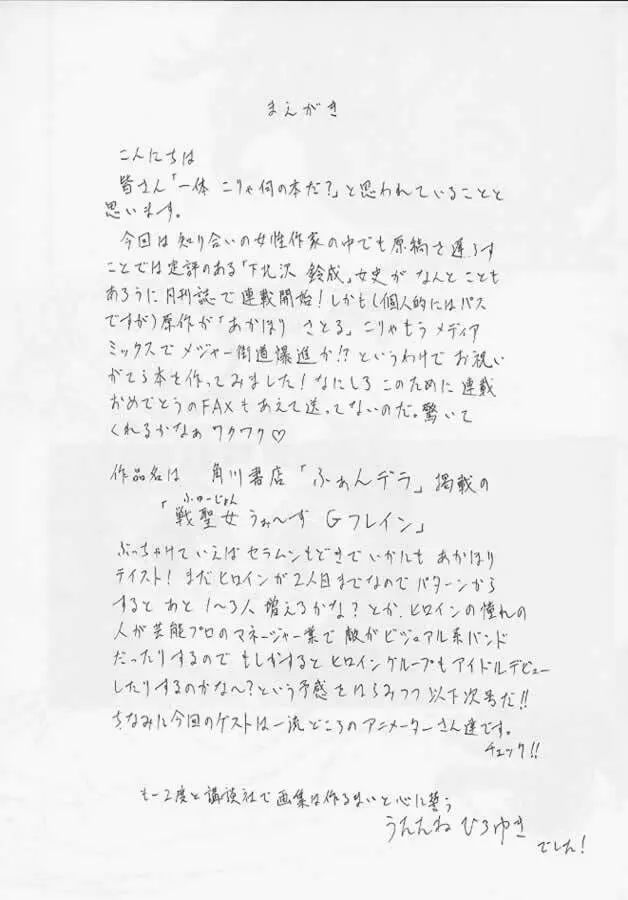 まえがき
こんにちは
皆さん「一体 こりゃ何の本だ?」と思われていることと
思います。
今回は知り合いの女性作家の中でも原稿を遅らす
ことでは定評のある「下北沢 鈴成」女史が なんと ことも
あろうに 月刊誌で連載開始!しかも(個人的にはパス
ですが)原作が「あかほり さとる」こりゃもう メディア
ミックスで メジャー街道爆進か!?というわけで お祝い
がてら本を作ってみました!なにしろ このために 連載
おめでとうのFAXもあえて送ってないのだ。驚いて
くれるかなぁ ワクワク♡
作品名は 角川書店「ふぁんデラ」掲載の
ふゅーじょん
「戦聖女 うぉ〜ず Gフレイン」
ぶっちゃけていえばセラムンもどきでいかにも あかほり
テイスト! まだヒロインが2人目までなので パターンから
すると あと 1〜3人 増えるかな? とか、ヒロインの憧れの
人が芸能プロのマネージャー業で 敵がビジュアル系バンド
だったりするので もしかすると ヒロイングループも アイドルデビュー
したりするのかな〜?という予感をはらみつつ 以下次号だ!!
ちなみに今回のゲストは一流どころのアニメーターさん達です。
チェック!!
も一2度と講談社で画集は作るまいと心に誓う
うたたね ひろゆき
でした!